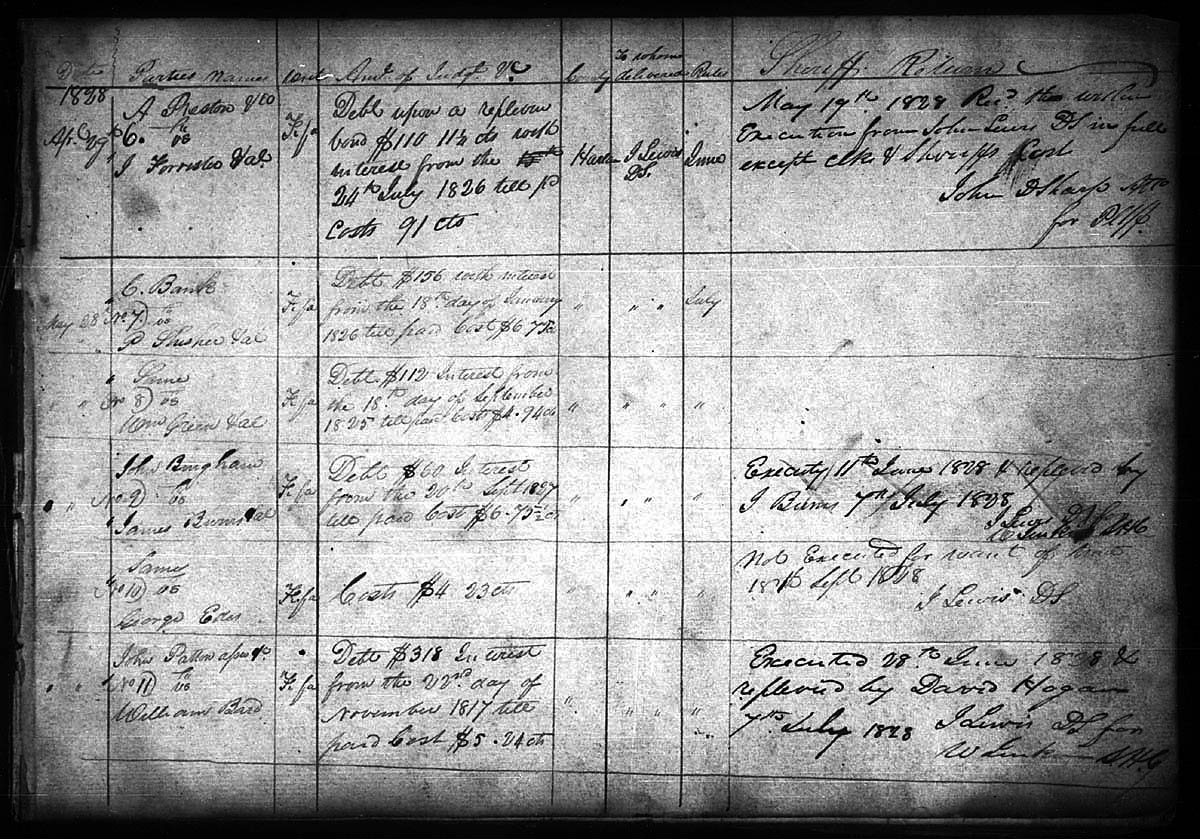 Date Parties names writ Amt. of Judgt &c County To whom delivered Rules Sheriff Return
1828
Apl 29th
A Preston & Co
C. vs
J Forrister & al
Fi fa
Debt upon a replevin
bond $110 11½ cts with
interest from the
24th July 1826 till pd
Costs 91 cts
Harlan
J Lewis
DS.
June
May 19th 1828 Recd the within
Execution from John Lewis DS in full
except clk & Sheriffs Cost
John D Sharp Atto
for Plff.
May 28
C. Bank
No 7) vs
P Slusher & al
Fi fa
Debt $156 with interest
from the 18th day of January
1826 till paid Cost $6 75
" " " July
" "
Same
No 8) vs
Wm Green & al
Fi fa
Debt $112 Interest from
the 18th day of September
1825 till paid Costs $4.94 cts
" " " "
" "
John Bingham
No 9) vs
James Burns & al
Fi fa
Debt $60 Interest
from the 20th Sept 1827
till paid Cost $6.75½ cts
" " " "
11th June 1828 & replevd by
J Burns 7th July 1828
J Lewis DS
Same
No 10) vs
George Eder
Fi fa
Costs $4 23 cts
" " " "
Not Executed for want of time
18th Sept 1828
J Lewis DS
" "
John Patton
No 11) vs
William Bird
Fi fa
Debt $318 Interest
from the 22nd day of
November 1817 till
paid Cost $5.24 cts
" " " "
Executed 28th June 1828 &
replevied by David Hogan
7th July 1828 J Lewis DS for